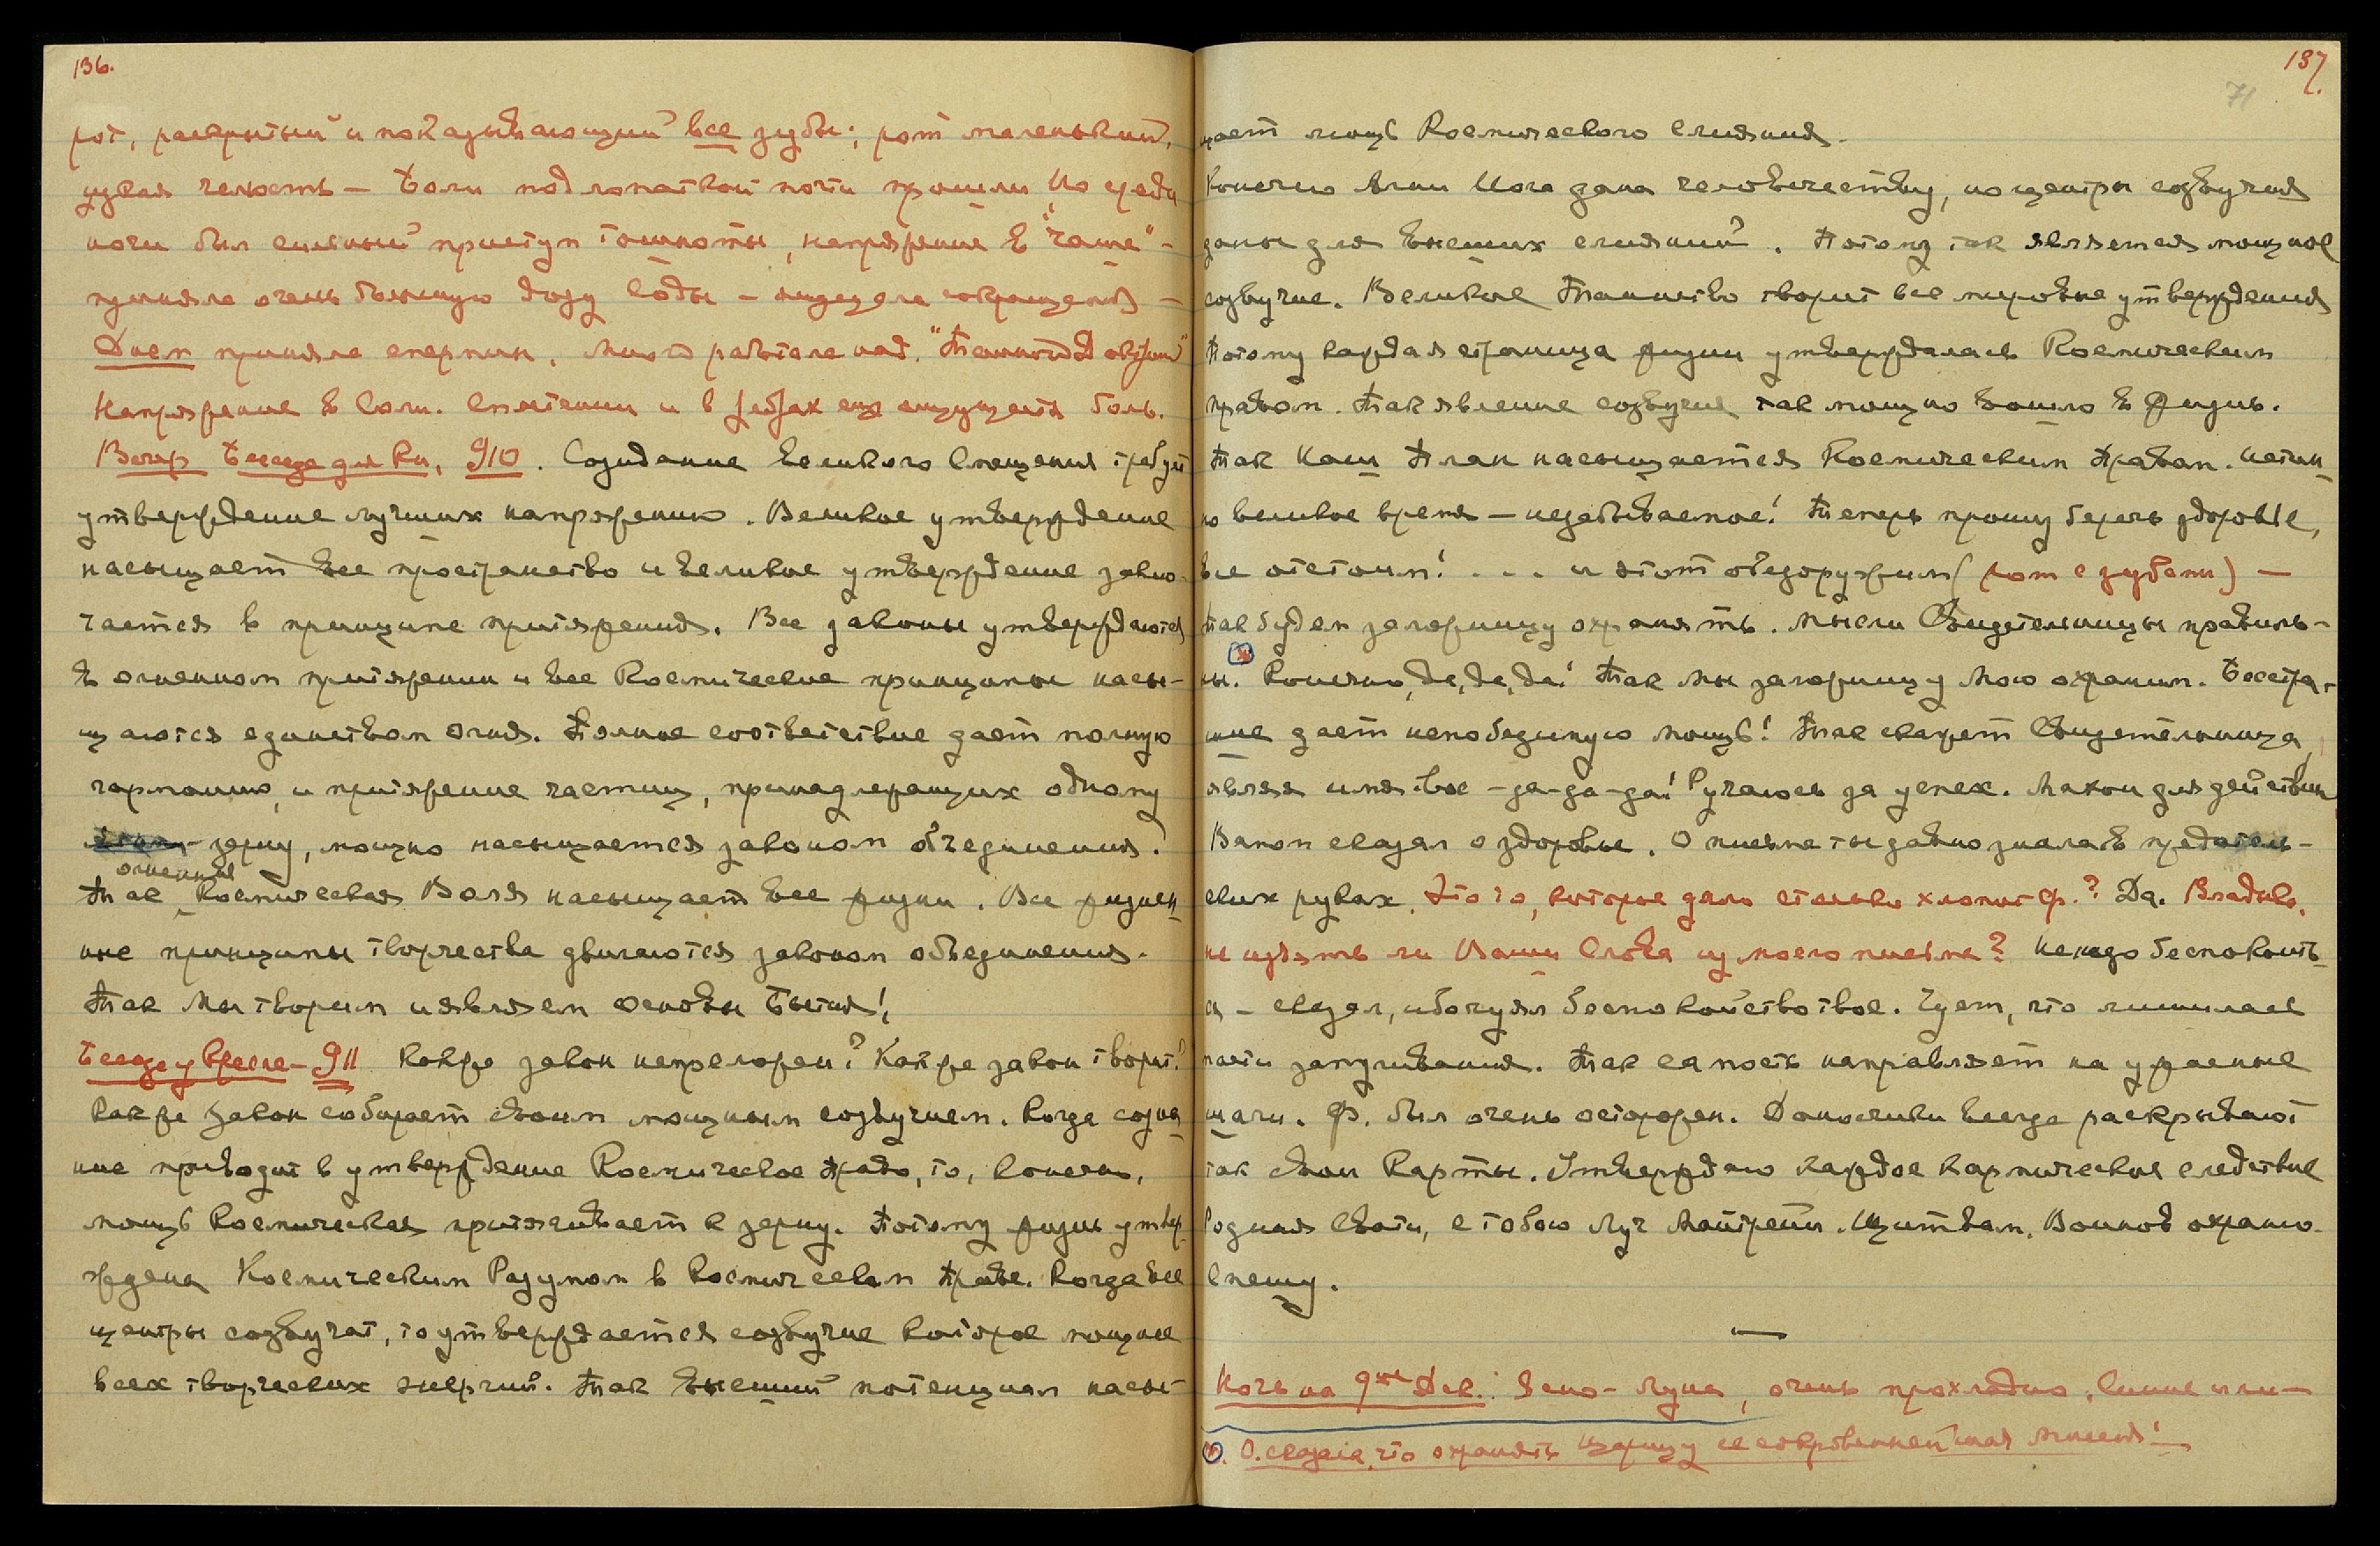 136.
рот, раскрытый и показывающий все зубы; рот маленький,
узкая челюсть – Боли под лопаткой почти прошли, но среди
ночи был сильный приступ тошноты, напряжение в "чаше" –
приняла очень большую дозу соды – ощущала сокращения –
Днем приняла спермин. Много работала над
Напряжение в Солн. сплетении и в ребрах еще ощущается боль.
Вечер Беседа для Кн. 910. Созидание великого Слияния требует
утверждение лучших напряжений. Великое утверждение
насыщает все пространство и великое утверждение заклю-
чается в принципе притяжения. Все законы утверждаются
в огненном притяжении и все Космические принципы насы-
щаются единством огня. Полное соответствие дает полную
гармонию, и притяжение частиц, принадлежащих одному
зерну, мощно насыщается законом объединения.
огненная
Так Космическая Воля насыщает все жизни. Все жизнен-
ные принципы творчества двигаются законом объединения.
Так Мы творим и являем основы Бытия!
Беседа у Кресла – 911 Какой же закон непреложен? Какой же закон творит?
Как же закон собирает своим мощным созвучием. Когда созна-
ние приводит в утверждение Космическое Право, то, конечно,
мощь Космическая притягивает к зерну. Потому жизнь утвер-
ждена Космическим Разумом в Космическом Праве. Когда все
центры созвучат, то утверждается созвучие которое мощнее
всех творческих энергий. Так высший потенциал насы-
137.
71
щает мощь Космического слияния.
Конечно Агни Йога дана человечеству, но центры созвучия
даны для высших слияний. Потому так является мощное
созвучие. Великое Таинство творит все мировые утверждения
Потому каждая страница жизни утверждалась Космическим
правом. Так явление созвучия так мощно вошло в жизнь.
Так Наш План насыщается Космическим Правом. Истин-
но великое время – незабываемое! Теперь прошу беречь здоровье,
все отстоим! . . . и этот обезоружим (рот с зубами) –
так будем заложницу охранять. Мысли Свидетельницы правиль-
ны. Конечно, да, да, да! Так мы заложницу Мою охраним. Бесстра-
шие дает непобедимую мощь! Так скажет Свидетельница,
являя имя твое – да-да-да! Ручаюсь за успех. Макон для действия
Вапом сказал о здоровье. О письме ты давно знала в предатель-
ских руках. Это то, которое дало столько хлопот Ф.? Да. Владыко,
не изъять ли Ваши Слова из моего письма? Не надо беспокоить-
ся – сказал, ибо чуял беспокойство твое. Чует, что лишилась
запугивания. Так самость направляет на ужасные
шаги. Ф. был очень осторожен. Доносчики всегда раскрывают
так свои карты. Утверждаю каждое кармическое следствие
Родная Свати, с тобою Луч Майтрейи. Щит вам. Воинов охраню.
Спешу.
—
Ночь на 9ое Дек. Ясно – Луна, очень прохладно. Синие или –
О. сказала, что охранять Царицу ее сокровеннейшая миссия!